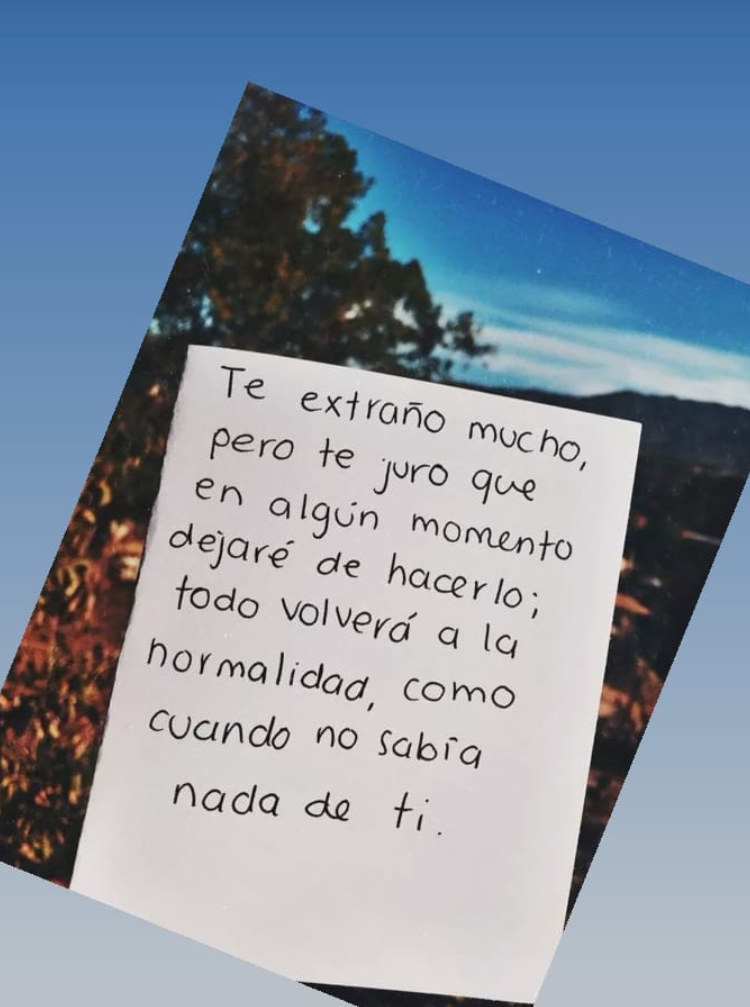 Te extraño mucho,
pero te juro que
en algún momento
dejaré de hacerlo;
todo volverá a la
normalidad, como
cuando no sabía
nada de ti.